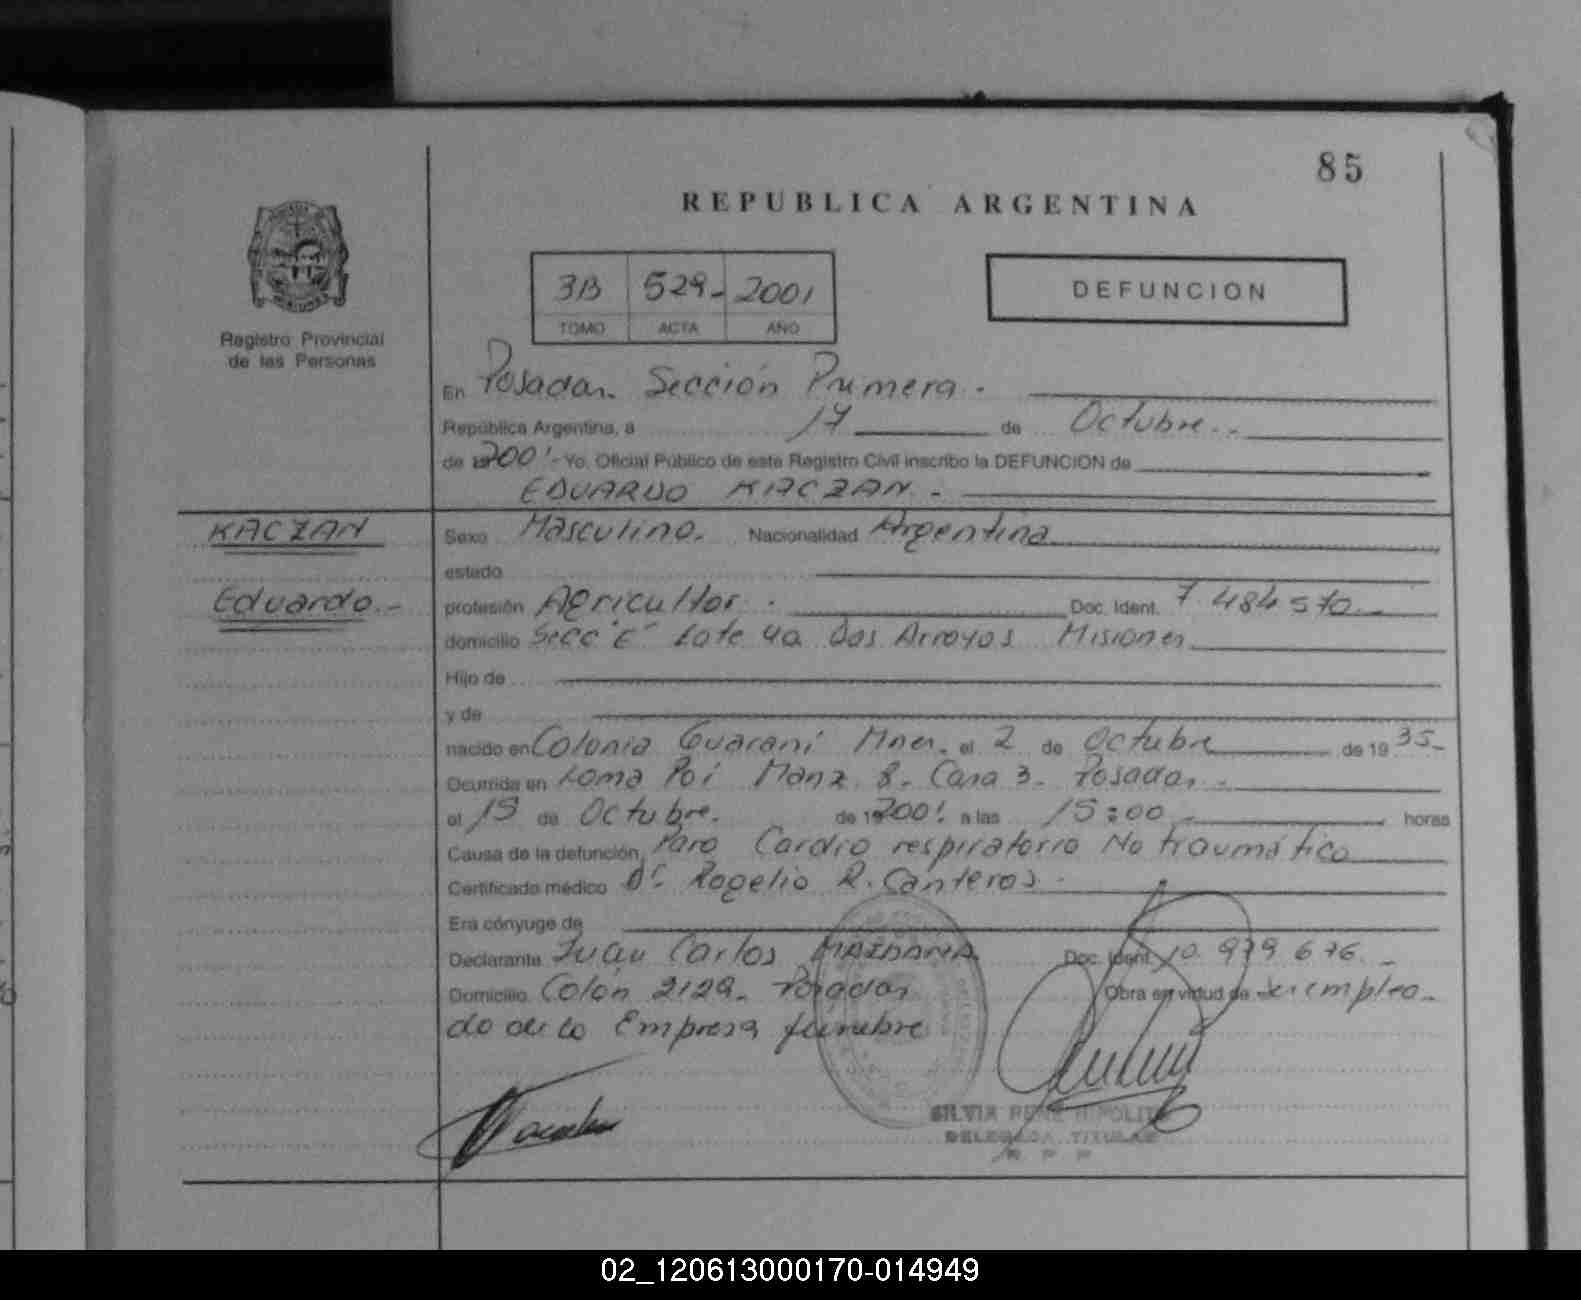 85
REPUBLICA ARGENTINA
3B 529- 2001
TOMO ACTA AÑO
DEFUNCION
Registro Provincial
de las Personas
En Posadas. Sección Primera.
República Argentina, a 17 de Octubre.
de 2001 - Yo, Oficial Público de este Registro Civil inscribo la DEFUNCION de
EDUARDO KACZAN.-
KACZAN
Sexo Masculino. Nacionalidad Argentina
estado
Eduardo.-
profesión Agricultor. Doc. Ident. 7.484.570.-
domicilio Secc "E" Lote 40 Dos Arroyos Misiones
Hijo de
y de
nacido en Colonia Guaraní Mnes. el 2 de Octubre de 1935-
Ocurrida en Loma Poí Manz 8- Casa 3- Posadas.-
el 15 de Octubre. de 2001. a las 15:00 horas
Causa de la defunción Paro Cardio respiratorio No traumático
Certificado médico Dr. Rogelio R. Canteros.
Era cónyuge de
Declarante Juan Carlos MAIDANA Doc. Ident. 10.979.676.-
Domicilio Colón 2129- Posadas Obra en virtud de ser emplea-
do de la Empresa fúnebre
SILVIA RENE HIPOLITO
DELEGADA TITULAR
R P P
02_120613000170-014949